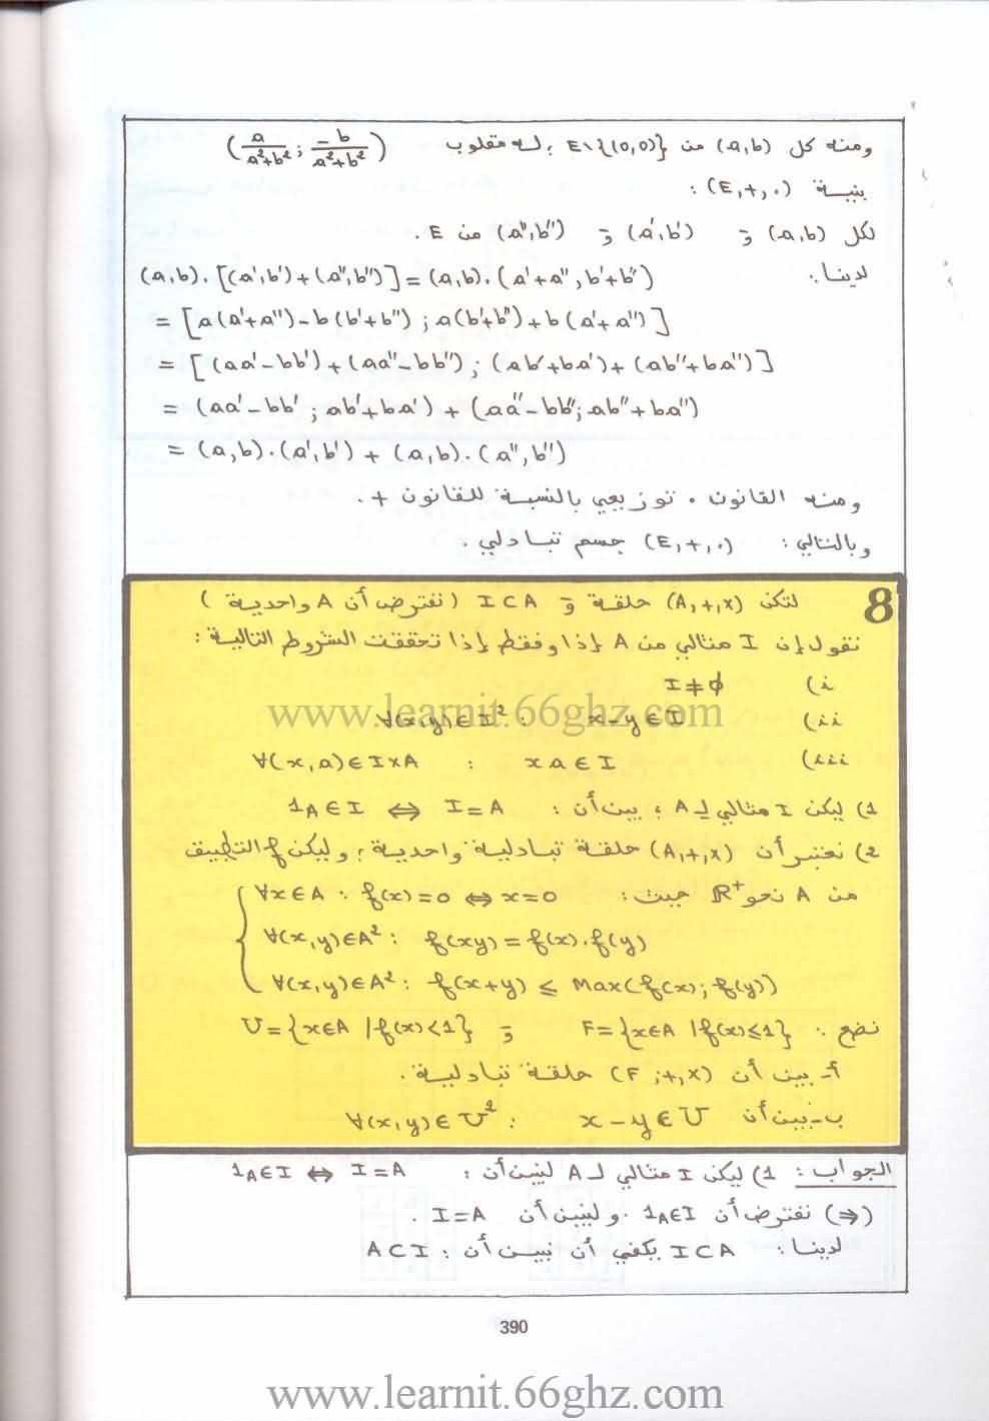 ومنه كل (a,b) من E\{(0,0)} ؛ له مقلوب (a/(a²+b²) ; -b/(a²+b²))
بنية (E,+,.) :
لكل (a,b) و (a',b') و (a'',b'') من E .
لدينا : (a,b).[(a',b')+(a'',b'')] = (a,b).(a'+a'',b'+b'')
= [a(a'+a'')-b(b'+b'') ; a(b'+b'')+b(a'+a'')]
= [(aa'-bb')+(aa''-bb'') ; (ab'+ba')+(ab''+ba'')]
= (aa'-bb' ; ab'+ba') + (aa''-bb'' ; ab''+ba'')
= (a,b).(a',b') + (a,b).(a'',b'')
ومنه القانون . توزيعي بالنسبة للقانون + .
وبالتالي : (E,+,.) جسم تبادلي .
8 لتكن (A,+,x) حلقة و I⊂A (نفترض أن A واحدية )
نقول إن I مثالي من A إذا وفقط إذا تحققت الشروط التالية :
i) I≠ϕ
ii) ∀(x,y)∈I² : x-y∈I
www.learnit.66ghz.com
iii) ∀(x,a)∈IxA : xa∈I
1) ليكن I مثالي لـ A ؛ بين أن : 1_A∈I ⇔ I=A
2) نعتبر أن (A,+,x) حلقة تبادلية واحدية ؛ وليكن f التطبيق
من A نحو ℝ⁺ حيث : ∀x∈A : f(x)=0 ⇔ x=0
∀(x,y)∈A² : f(xy)=f(x).f(y)
∀(x,y)∈A² : f(x+y) ≤ Max(f(x);f(y))
نضع : F={x∈A | f(x)≤1} و U={x∈A | f(x)<1}
أ- بين أن (F;+,x) حلقة تبادلية .
ب- بين أن ∀(x,y)∈U² : x-y∈U
الجواب : 1) ليكن I مثالي لـ A لنبين أن : 1_A∈I ⇔ I=A
(⇒) نفترض أن 1_A∈I . ولنبين أن I=A .
لدينا : I⊂A يكفي أن نبين أن : A⊂I
390
www.learnit.66ghz.com